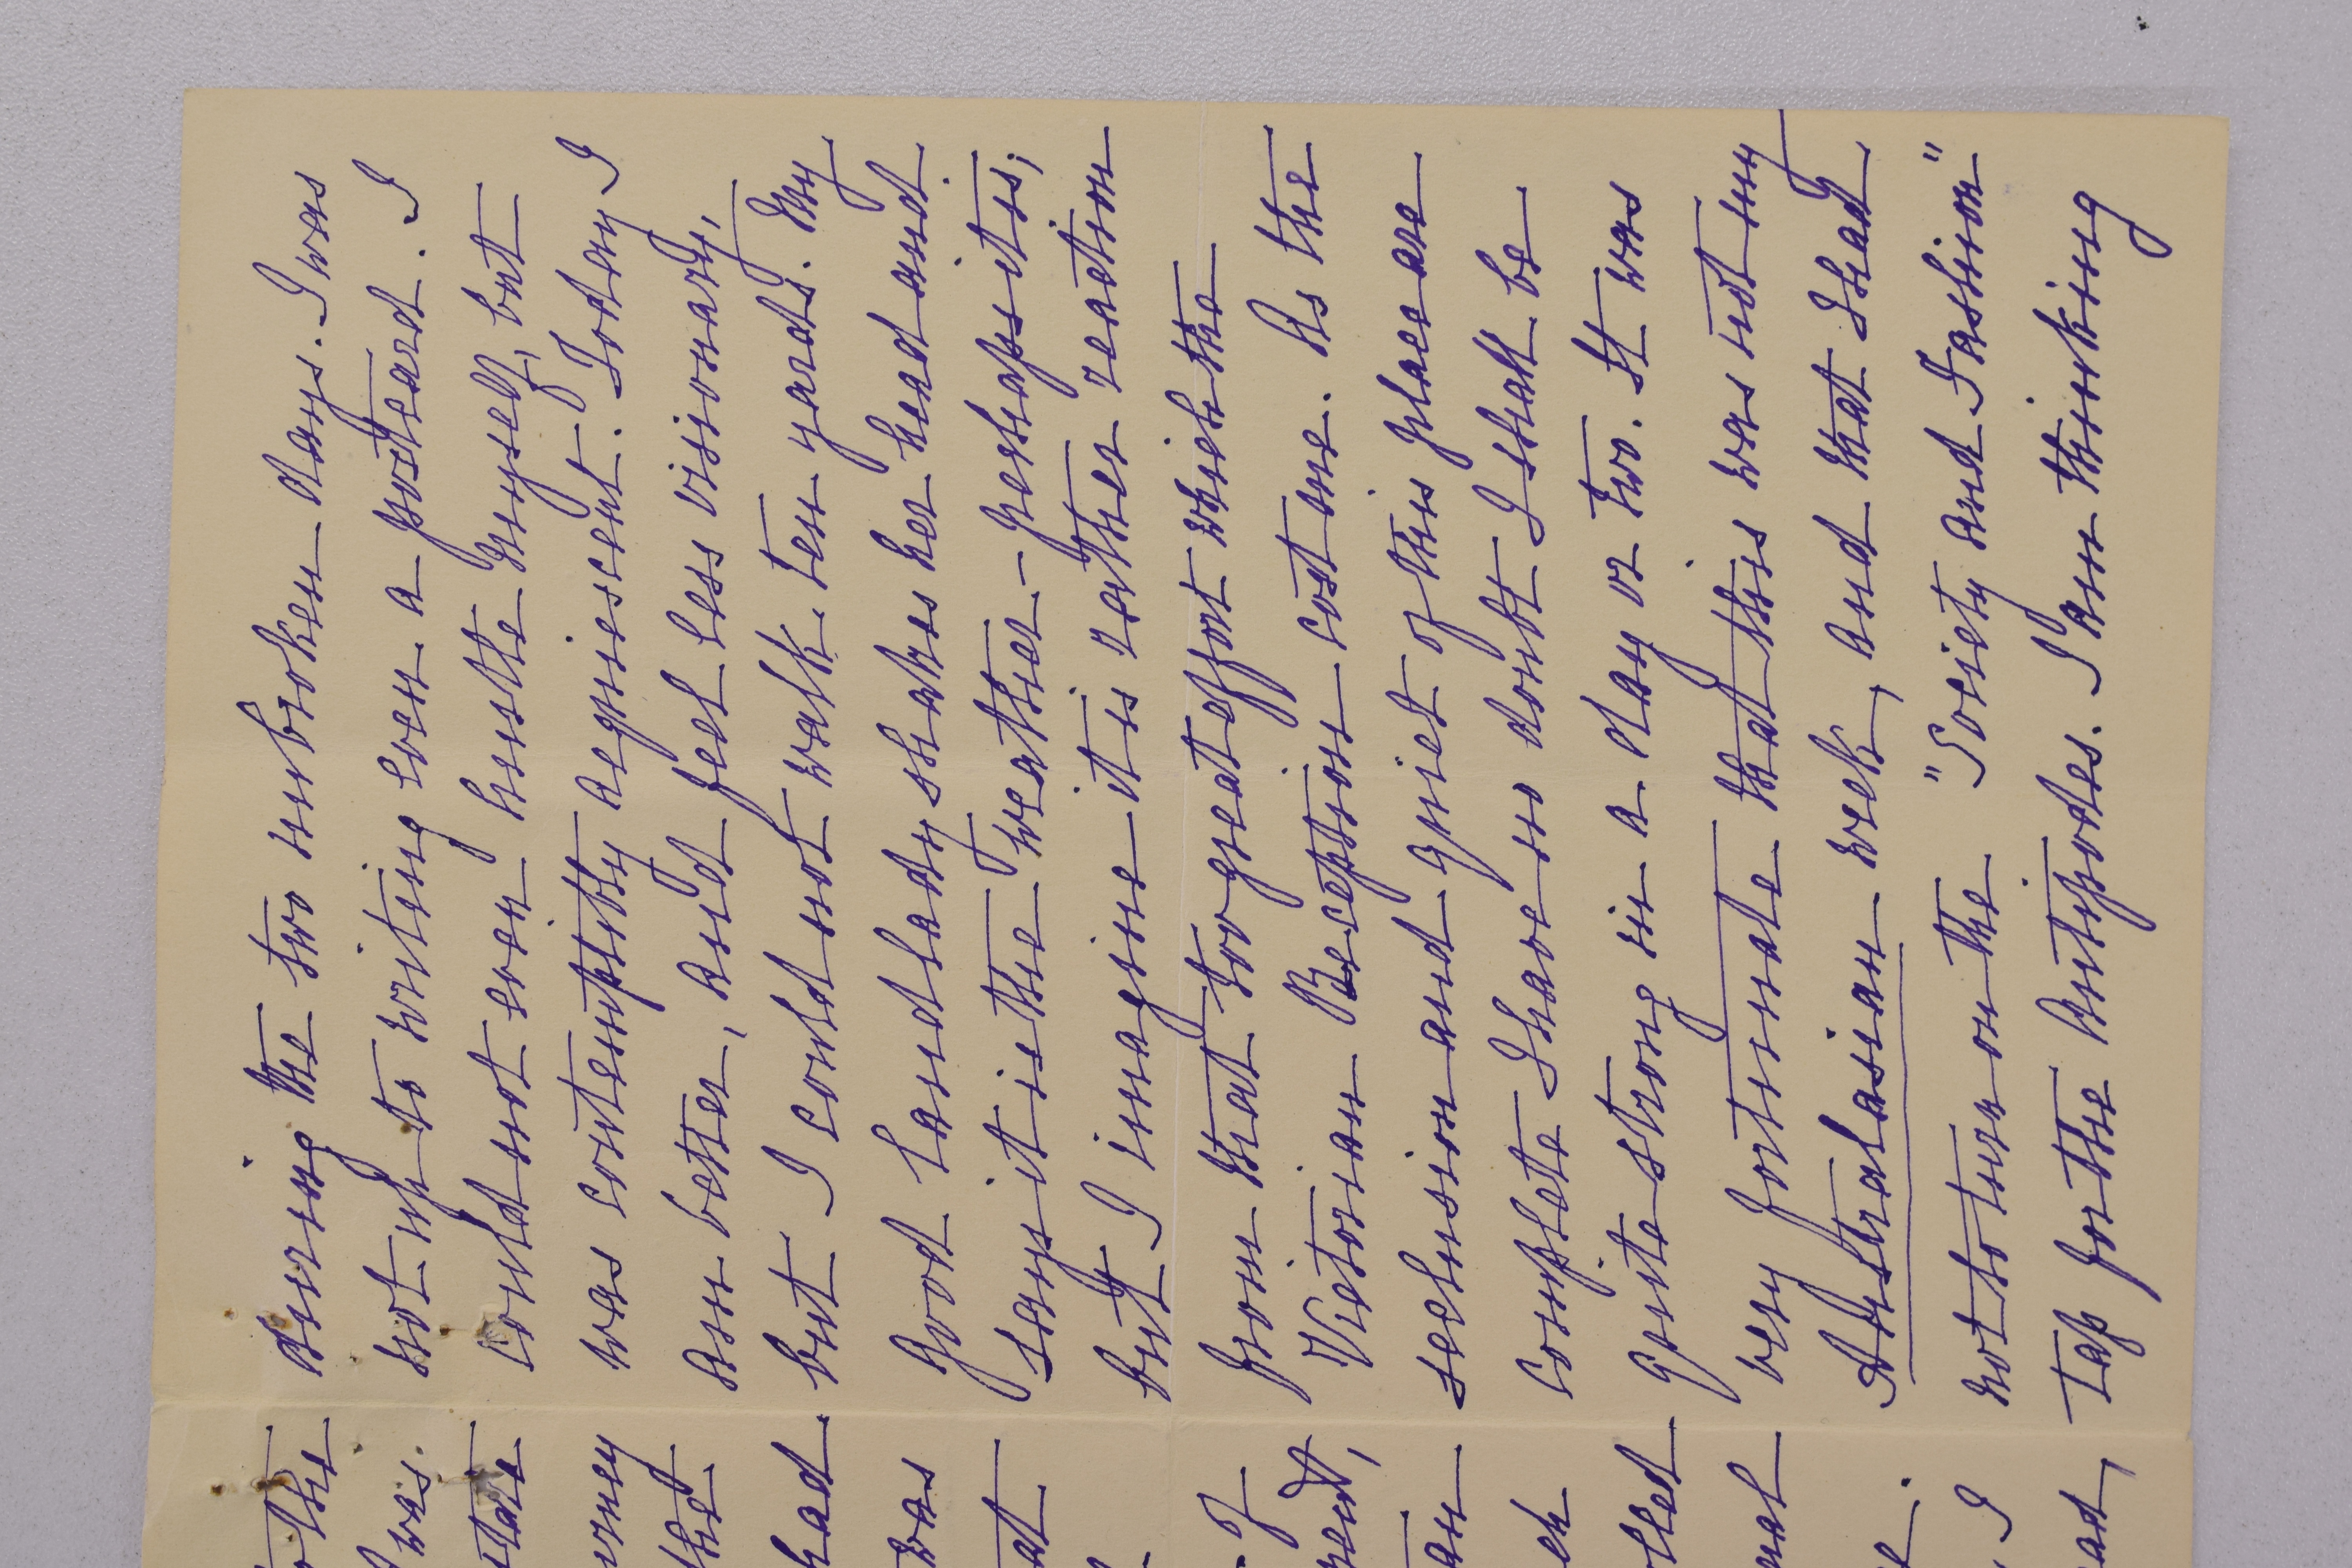 during the two unbroken days. I was
not up to writing even a postcard. I
could not even hustle myself, but
was contemptibly acquiescent. Today I
am better, and feel less visionary,
but I could not walk ten yards. My
good landlady shakes her head and
says it is the weather – perhaps it is;
but I imagine it is rather reaction
from that too great effort which the
Victorian Reception cost me. As the
seclusion and quiet of this place are
complete I have no doubt I shall be
quite strong in a day or two. It was
very fortunate that this was not my
Australasian week, and that I had
not to turn on the "Society and Fashion"
tap for the Antipodes. I am thinking
the
was.
state
the
had
was
at
of
an
I